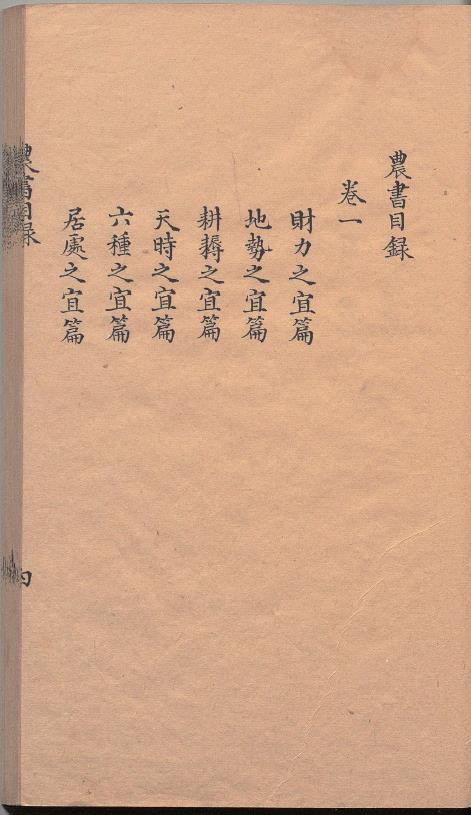 農書目録
卷一
財力之宜篇
地勢之宜篇
耕耨之宜篇
天時之宜篇
六種之宜篇
居處之宜篇
農書目録